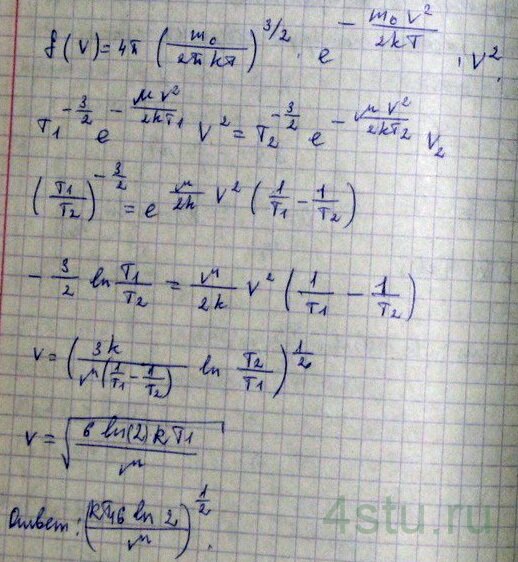 f(v)=4π (m₀/2πkT)^3/2 · e^-m₀v²/2kT · v²
T₁^-3/2 e^-μv²/2kT₁ v² = T₂^-3/2 e^-μv²/2kT₂ v₂
(T₁/T₂)^-3/2 = e^μ/2k v² (1/T₁ - 1/T₂)
-3/2 ln T₁/T₂ = μ/2k v² (1/T₁ - 1/T₂)
v = (3k/μ(1/T₁ - 1/T₂) ln T₂/T₁)^1/2
v = √(6 ln(2) kT₁/μ)
Ответ: (kT₁6 ln 2/μ)^1/2.
4stu.ru